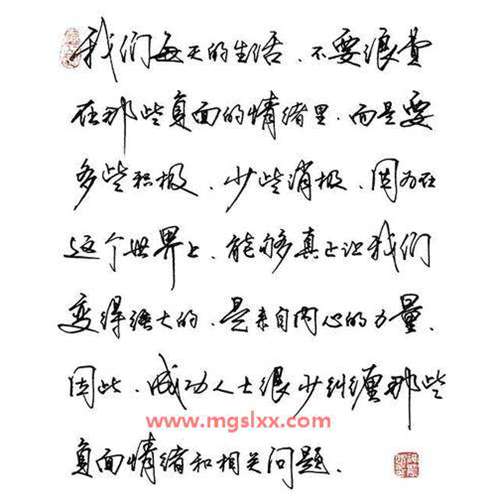 我们每天的生活、不要浪费
在那些负面的情绪里、而是要
多些积极、少些消极、因为在
这个世界上、能够真正让我们
变得强大的、是来自内心的力量、
因此、成功人士很少纠缠那些
www.mgslxx.com
负面情绪和相关问题.